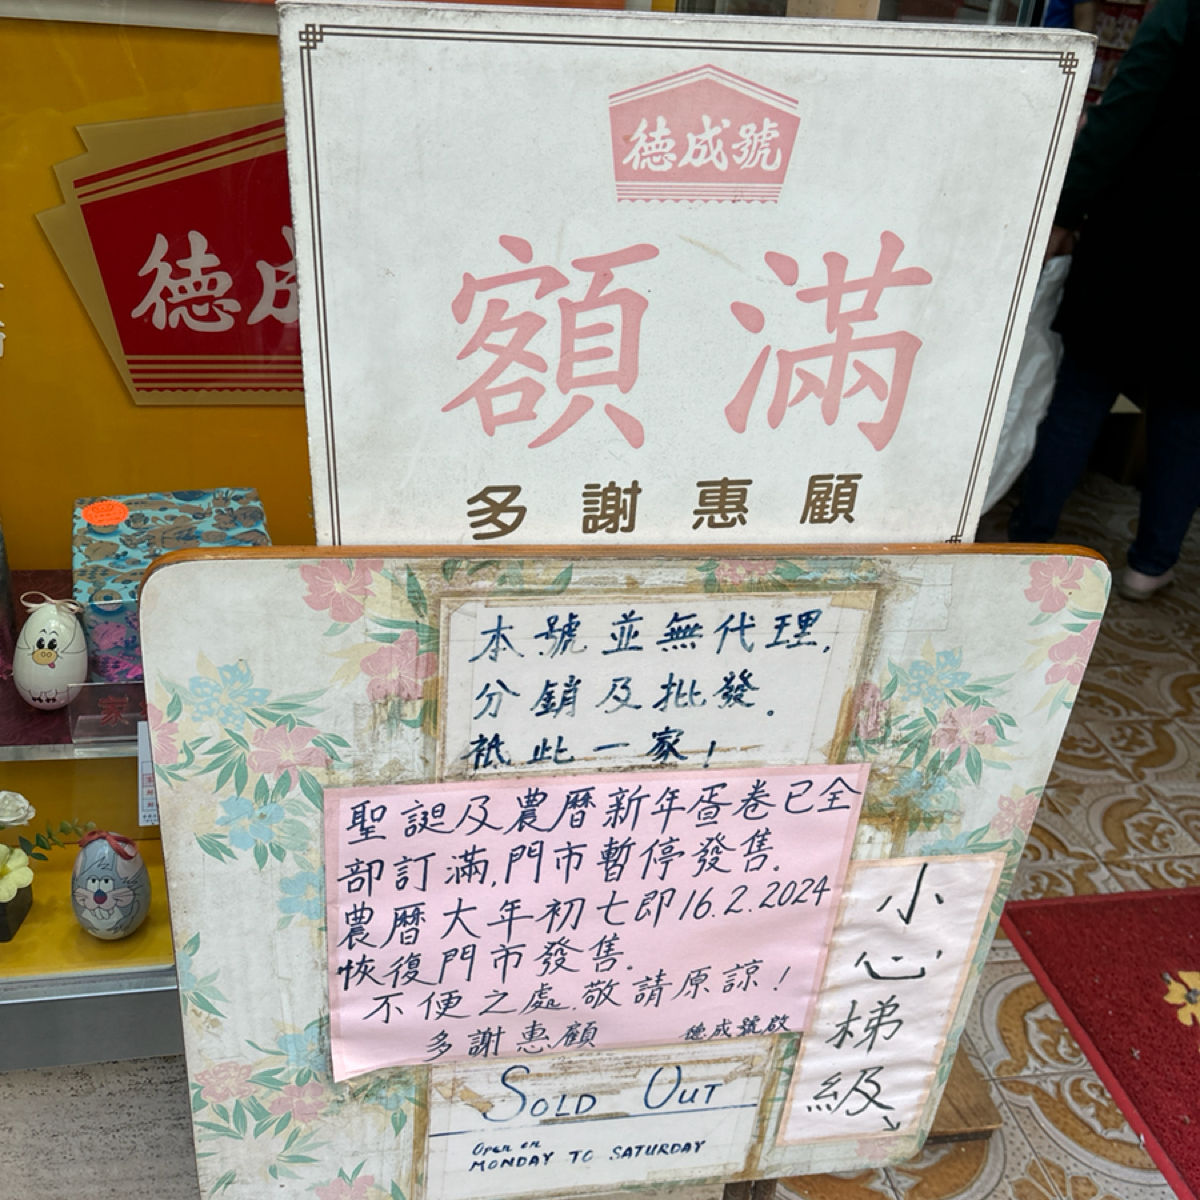 德成號
德成
額滿
多謝惠顧
本號並無代理,
分銷及批發.
祗此一家!
聖誕及農曆新年蛋卷已全
部訂滿,門市暫停發售.
農曆大年初七即16.2.2024
恢復門市發售.
不便之處.敬請原諒!
多謝惠顧 德成號啟
小心梯級
SOLD OUT
Open on
MONDAY TO SATURDAY
家